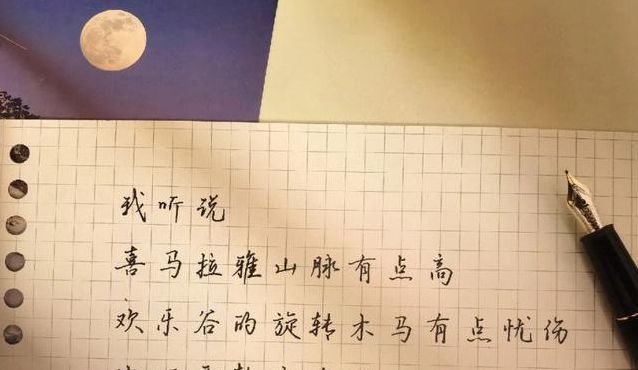 我听说
喜马拉雅山脉有点高
欢乐谷的旋转木马有点忧伤